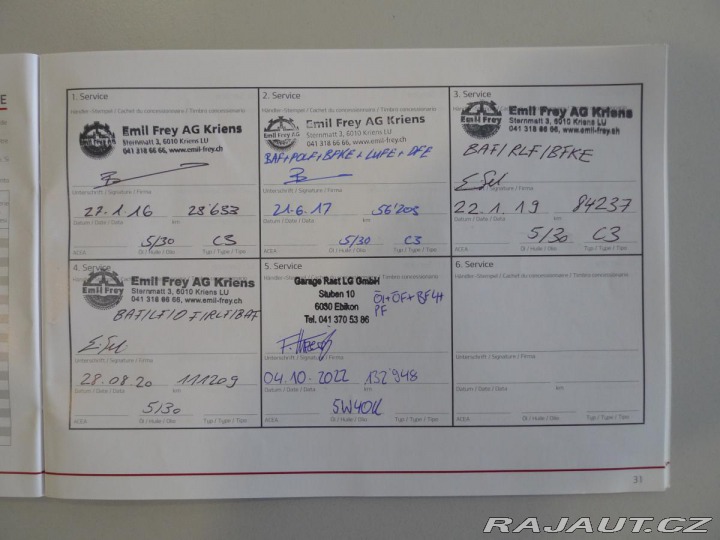 E
1. Service
Händler-Stempel / Cachet du concessionnaire / Timbro concessionario
Emil Frey
Emil Frey AG Kriens
Sternmatt 3, 6010 Kriens LU
041 318 66 66, www.emil-frey.ch
Unterschrift / Signature / Firma
27.1.16 28'633
Datum / Date / Data km
5/30 C3
ACEA Öl / Huile / Olio Typ / Type / Tipo
2. Service
Händler-Stempel / Cachet du concessionnaire / Timbro concessionario
Emil Frey
Emil Frey AG Kriens
Sternmatt 3, 6010 Kriens LU
041 318 66 66, www.emil-frey.ch
Unterschrift / Signature / Firma
21.6.17 56'203
Datum / Date / Data km
5/30 C3
ACEA Öl / Huile / Olio Typ / Type / Tipo
3. Service
Emil Frey
Emil Frey AG Kriens
Sternmatt 3, 6010 Kriens LU
041 318 66 66, www.emil-frey.ch
BAF/RLF/BFKE
Unterschrift / Signature / Firma
22.1.19 84237
Datum / Date / Data km
5/30 C3
ACEA Öl / Huile / Olio Typ / Type / Tipo
4. Service
Emil Frey
Emil Frey AG Kriens
Sternmatt 3, 6010 Kriens LU
041 318 66 66, www.emil-frey.ch
Unterschrift / Signature / Firma
28.08.20 111209
Datum / Date / Data km
5/30
ACEA Öl / Huile / Olio Typ / Type / Tipo
5. Service
Garage Rast LG GmbH
Stuben 10
6030 Ebikon
Tel. 041 370 53 86
Öl+ÖF+BFl+
PF
Unterschrift / Signature / Firma
04.10.2022 132'948
Datum / Date / Data km
5W40
ACEA Öl / Huile / Olio Typ / Type / Tipo
6. Service
Händler-Stempel / Cachet du concessionnaire / Timbro concessionario
Unterschrift / Signature / Firma
Datum / Date / Data km
ACEA Öl / Huile / Olio Typ / Type / Tipo
31
RAJAUT.CZ